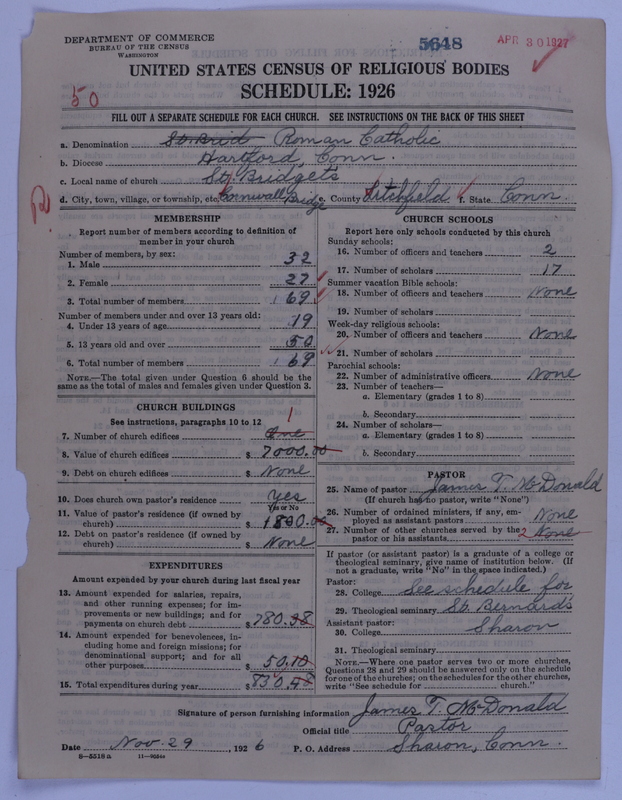 DEPARTMENT OF COMMERCE
BUREAU OF THE CENSUS
WASHINGTON
5648
APR 30 1927
UNITED STATES CENSUS OF RELIGIOUS BODIES
SCHEDULE: 1926
50
FILL OUT A SEPARATE SCHEDULE FOR EACH CHURCH. SEE INSTRUCTIONS ON THE BACK OF THIS SHEET
a. Denomination Roman Catholic
b. Diocese Hartford, Conn.
c. Local name of church St. Bridgets
d. City, town, village, or township, etc. Cornwall Bridge e. County Litchfield f. State Conn.
MEMBERSHIP
Report number of members according to definition of
member in your church
Number of members, by sex:
1. Male 32
2. Female 27
3. Total number of members 69
Number of members under and over 13 years old:
4. Under 13 years of age 19
5. 13 years old and over 50
6. Total number of members 69
NOTE.—The total given under Question 6 should be the
same as the total of males and females given under Question 3.
CHURCH BUILDINGS
See instructions, paragraphs 10 to 12
1
7. Number of church edifices One
8. Value of church edifices $ 7000.00
9. Debt on church edifices $ None
10. Does church own pastor's residence Yes
Yes or No
11. Value of pastor's residence (if owned by
church) $ 1800.00
12. Debt on pastor's residence (if owned by
church) $ None
EXPENDITURES
Amount expended by your church during last fiscal year
13. Amount expended for salaries, repairs,
and other running expenses; for im-
provements or new buildings; and for
payments on church debt $ 780.38
14. Amount expended for benevolences, in-
cluding home and foreign missions; for
denominational support; and for all
other purposes $ 50.10
15. Total expenditures during year $ 830.48
CHURCH SCHOOLS
Report here only schools conducted by this church
Sunday schools:
16. Number of officers and teachers 2
17. Number of scholars 17
Summer vacation Bible schools:
18. Number of officers and teachers None
19. Number of scholars
Week-day religious schools:
20. Number of officers and teachers None
21. Number of scholars
Parochial schools:
22. Number of administrative officers None
23. Number of teachers—
a. Elementary (grades 1 to 8)
b. Secondary
24. Number of scholars—
a. Elementary (grades 1 to 8)
b. Secondary
PASTOR
25. Name of pastor James T. McDonald
(If church has no pastor, write "None")
26. Number of ordained ministers, if any, em-
ployed as assistant pastors None
27. Number of other churches served by the
pastor or his assistants 2 None
If pastor (or assistant pastor) is a graduate of a college or
theological seminary, give name of institution below. (If
not a graduate, write "No" in the space indicated.)
Pastor:
28. College See schedule for
29. Theological seminary St. Bernards
Assistant pastor:
30. College Sharon
31. Theological seminary
NOTE.—Where one pastor serves two or more churches,
Questions 28 and 29 should be answered only on the schedule
for one of the churches; on the schedules for the other churches,
write "See schedule for church."
Signature of person furnishing information James T. McDonald
Official title Pastor
Date Nov. 29, 1926 P. O. Address Sharon, Conn.
8—5518a